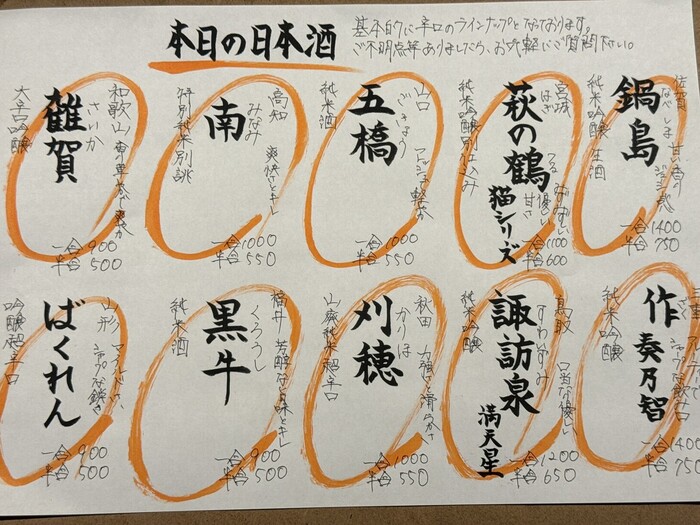 本日の日本酒
基本的に辛口のラインナップとなっております。
ご不明点等ありましたら、お気軽にご質問下さい。
佐賀
なべしま
鍋島
純米吟醸 生酒
一合 1400
半合 750
宮城
はぎ つる
萩の鶴
猫シリズ
純米吟醸別仕込み
一合 1100
半合 600
山口
ごきょう
フレッシュ 軽やか
五橋
純米酒
一合 1000
半合 550
高知
みなみ
爽快さとキレ
南
特別純米別誂
一合 1000
半合 550
和歌山
さいか
雑賀
大辛口吟醸
一合 900
半合 500
作
奏乃智
純米吟醸
一合 1400
半合 750
鳥取
すわいずみ
口当な優しい
諏訪泉
満天星
純米吟醸
一合 1200
半合 650
秋田
かりほ
力強さと滑らかさ
刈穂
山廃純米超辛口
一合 1000
半合 550
福井
くろうし
芳醇な旨味とキレ
黒牛
純米酒
一合 900
半合 500
山形
ばくれん
吟醸超辛口
一合 900
半合 500